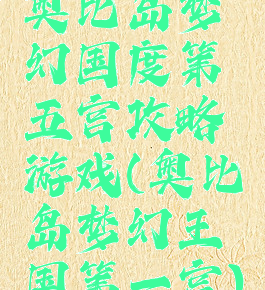 奥比岛梦
幻国度第
五宫攻略
游戏(奥比
岛梦幻王
国第一宫)